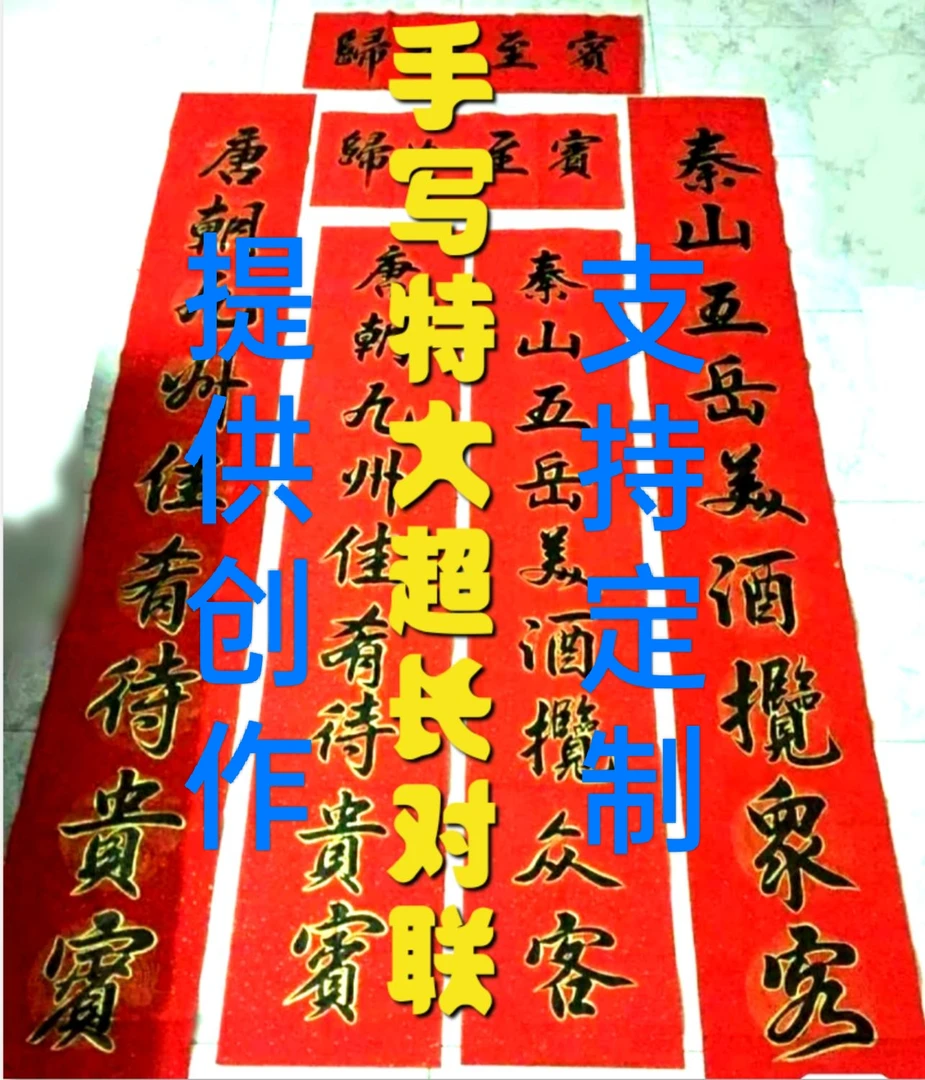 手写特大超长对联
支持定制
提供创作
賓至歸
賓至歸
秦山五岳美酒攬衆客
唐朝九州佳肴待貴賓
秦山五岳美酒攬众客
唐朝九州佳肴待貴賓